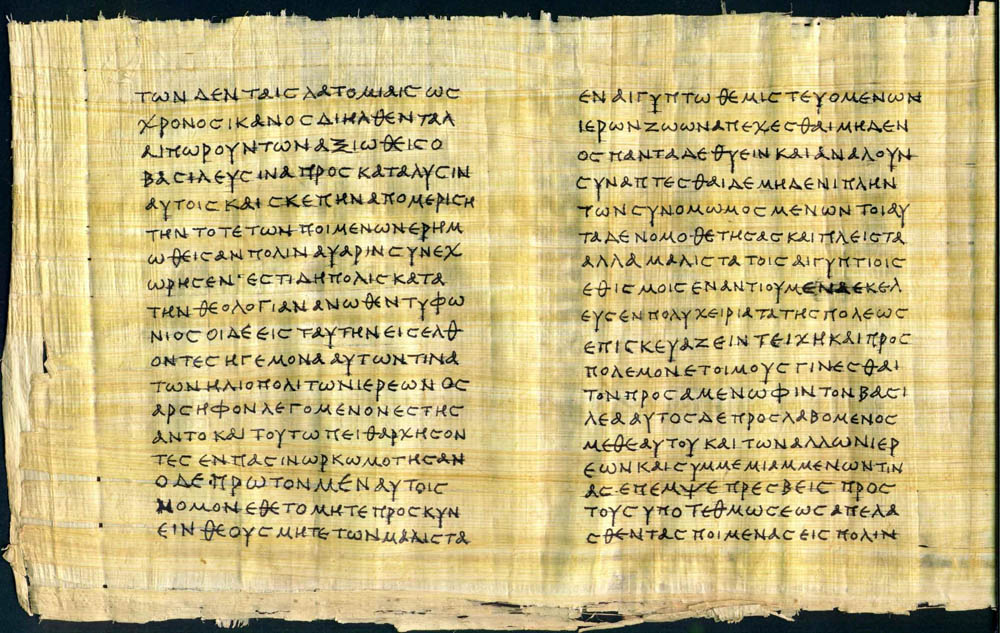 ΤΩΝ ΔΕΝ ΤΑΙC ΛΑΤΟΜΙΑΙC ΩC
ΧΡΟΝΟCΙΚΑΝΟCΔΙΗΛΘΕΝΤΑΛ
ΑΙΠΩΡΟΥΝΤΩΝΑΞΙΩΘΕΙCΟ
ΒΑCΙΛΕΥCΙΝΑΠΡΟCΚΑΤΑΛΥCΙΝ
ΑΥΤΟΙCΚΑΙCΚΕΠΗΝΑΠΟΜΕΡΙCΗ
ΤΗΝΤΟΤΕΤΩΝΠΟΙΜΕΝΩΝΕΡΗΜ
ΩΘΕΙCΑΝΠΟΛΙΝΑΥΑΡΙΝCΥΝΕΧ
ΩΡΗCΕΝ·ΕCΤΙΔΗΠΟΛΙCΚΑΤΑ
ΤΗΝΘΕΟΛΟΓΙΑΝΑΝΩΘΕΝΤΥΦΩ
ΝΙΟCΟΙΔΕΕΙCΤΑΥΤΗΝΕΙCΕΛΘ
ΟΝΤΕCΗΓΕΜΟΝΑΑΥΤΩΝΤΙΝΑ
ΤΩΝΗΛΙΟΠΟΛΙΤΩΝΙΕΡΕΩΝΟC
ΑΡCΗΦΟΝΛΕΓΟΜΕΝΟΝΕCΤΗC
ΑΝΤΟΚΑΙΤΟΥΤΩΠΕΙΘΑΡΧΗCΟΝ
ΤΕCΕΝΠΑCΙΝΩΡΚΩΜΟΤΗCΑΝ
ΟΔΕΠΡΩΤΟΝΜΕΝΑΥΤΟΙC
ΝΟΜΟΝΕΘΕΤΟΜΗΤΕΠΡΟCΚΥΝ
ΕΙΝΘΕΟΥCΜΗΤΕΤΩΝΜΑΛΙCΤΑ
ΕΝΑΙΓΥΠΤΩΘΕΜΙCΤΕΥΟΜΕΝΩΝ
ΙΕΡΩΝΖΩΩΝΑΠΕΧΕCΘΑΙΜΗΔΕΝ
ΟCΠΑΝΤΑΔΕΘΥΕΙΝΚΑΙΑΝΑΛΟΥΝ
CΥΝΑΠΤΕCΘΑΙΔΕΜΗΔΕΝΙΠΛΗΝ
ΤΩΝCΥΝΟΜΩΜΟCΜΕΝΩΝΤΟΙΑΥ
ΤΑΔΕΝΟΜΟΘΕΤΗCΑCΚΑΙΠΛΕΙCΤΑ
ΑΛΛΑΜΑΛΙCΤΑΤΟΙCΑΙΓΥΠΤΙΟΙC
ΕΘΙCΜΟΙCΕΝΑΝΤΙΟΥΜΕΝΑΕΚΕΛ
ΕΥCΕΝΠΟΛΥΧΕΙΡΙΑΤΑΤΗCΠΟΛΕΩC
ΕΠΙCΚΕΥΑΖΕΙΝΤΕΙΧΗΚΑΙΠΡΟC
ΠΟΛΕΜΟΝΕΤΟΙΜΟΥCΓΙΝΕCΘΑΙ
ΤΟΝΠΡΟCΑΜΕΝΩΦΙΝΤΟΝΒΑCΙ
ΛΕΑΑΥΤΟCΔΕΠΡΟCΛΑΒΟΜΕΝΟC
ΜΕΘΕΑΥΤΟΥΚΑΙΤΩΝΑΛΛΩΝΙΕΡ
ΕΩΝΚΑΙCΥΜΜΕΜΙΑΜΜΕΝΩΝΤΙΝ
ΑCΕΠΕΜΨΕΠΡΕCΒΕΙCΠΡΟC
ΤΟΥCΥΠΟΤΕΘΜΩCΕΩCΑΠΕΛΑ
CΘΕΝΤΑCΠΟΙΜΕΝΑCΕΙCΠΟΛΙΝ